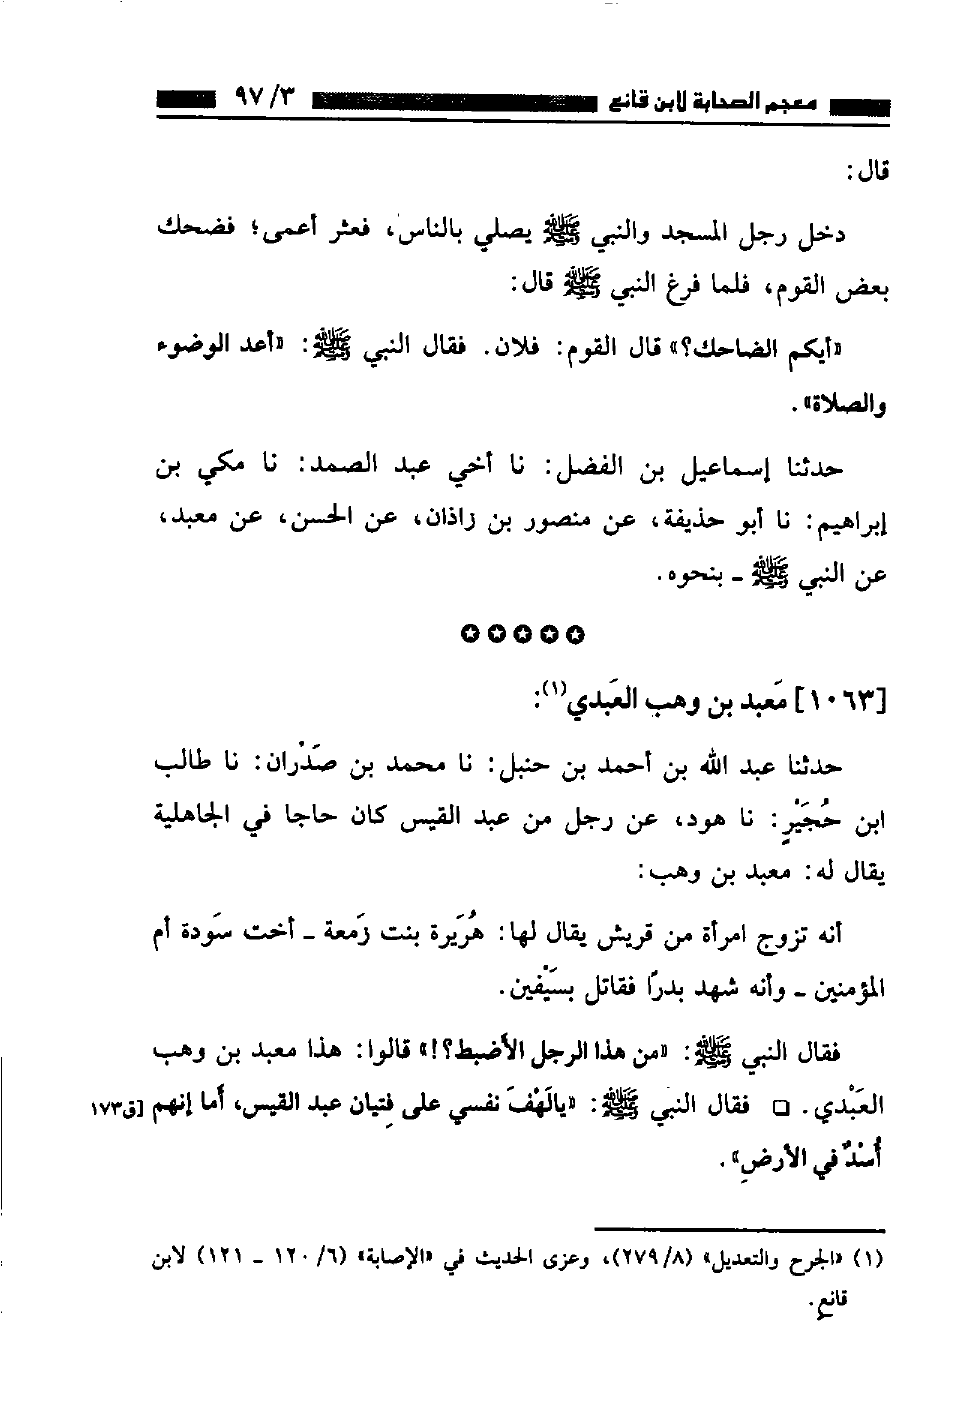 معجم الصحابة لابن قانع ٩٧/٣
قال:
دخل رجل المسجد والنبي ﷺ يصلي بالناس، فعثر أعمى؛ فضحك
بعض القوم، فلما فرغ النبي ﷺ قال:
«أيكم الضاحك؟» قال القوم: فلان. فقال النبي ﷺ: «أعد الوضوء
والصلاة».
حدثنا إسماعيل بن الفضل: نا أخي عبد الصمد: نا مكي بن
إبراهيم: نا أبو حذيفة، عن منصور بن زاذان، عن الحسن، عن معبد،
عن النبي ﷺ ـ بنحوه.
✪✪✪✪✪
[١٠٦٣] مَعبد بن وهب العَبدي(١):
حدثنا عبد الله بن أحمد بن حنبل: نا محمد بن صَدْران: نا طالب
ابن حُجَيْرٍ: نا هود، عن رجل من عبد القيس كان حاجا في الجاهلية
يقال له: معبد بن وهب:
أنه تزوج امرأة من قريش يقال لها: هُرَيرة بنت زَمعة ـ أخت سَودة أم
المؤمنين ـ وأنه شهد بدرًا فقاتل بسَيْفين.
فقال النبي ﷺ: «من هذا الرجل الأضبط؟!» قالوا: هذا معبد بن وهب
العَبْدي. □ فقال النبي ﷺ: «يالَهْفَ نفسي على فِتيان عبد القيس، أَما إنهم [ق١٧٣
أُسْدٌ في الأرضِ».
(١) «الجرح والتعديل» (٢٧٩/٨)، وعزى الحديث في «الإصابة» (١٢٠/٦ ـ ١٢١) لابن
قانع.